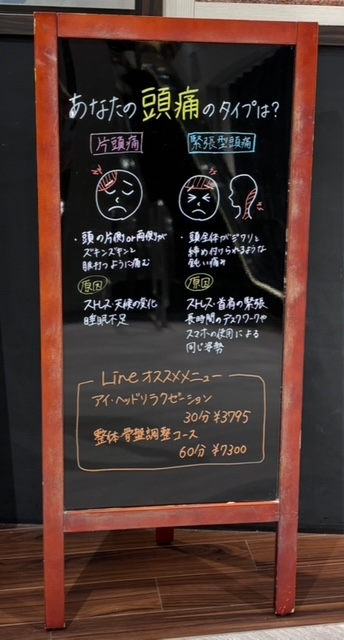 あなたの頭痛のタイプは?
片頭痛
・頭の片側or両側が
ズキンズキンと
脈打つように痛む
原因
ストレス・天候の変化
睡眠不足
緊張型頭痛
・頭全体がギクリと
締め付けられるような
鈍い痛み
原因
ストレス・首肩の緊張
長時間のデスクワークや
スマホの使用による
同じ姿勢
Lineオススメメニュー
アイ・ヘッドリラクゼーション
30分 ¥3795
整体骨盤調整コース
60分 ¥7300